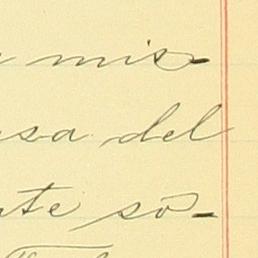 mis-
sa del
te so-